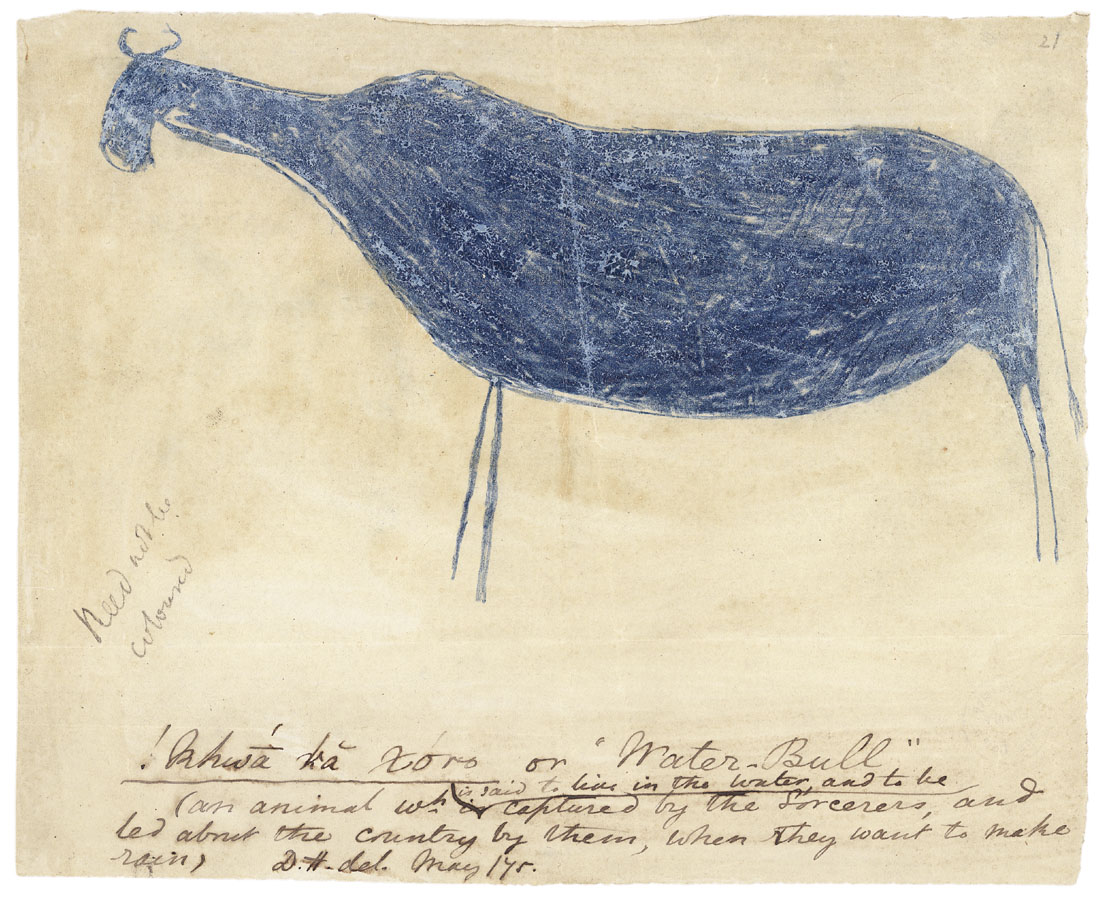 21
Need not be
coloured
!Khwā́ kă Xóro or "Water-Bull"
is said to live in the water, and to be
(an animal wh. captured by the Sorcerers, and
led about the country by them, when they want to make
rain) D.H. del. May /75.